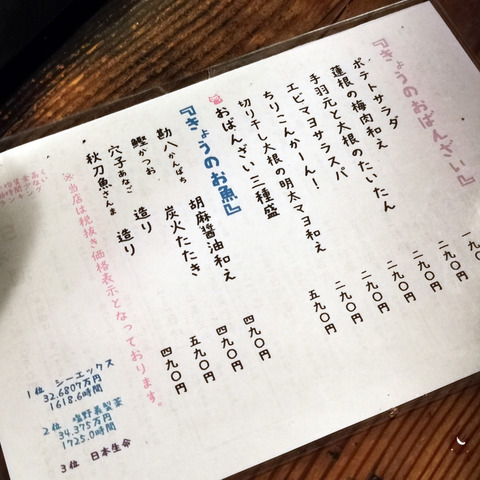 『きょうのおばんざい』
ポテトサラダ
蓮根の梅肉和え 二九〇円
手羽元と大根のたいたん 二九〇円
エビマヨサラスパ 二九〇円
ちりこんかーん！ 二九〇円
切り干し大根の明太マヨ和え 二九〇円
おばんざい三種盛 五九〇円
『きょうのお魚』
勘八かんぱち 胡麻醤油和え 四九〇円
鰹かつお 炭火たたき 四九〇円
穴子あなご 造り 五九〇円
秋刀魚さんま 造り 四九〇円
※当店は税抜き価格表示となっております。
1位 シーエックス
32.6807万円
1618.6時間
2位 塩野義製薬
34.375万円
1725.0時間
3位 日本生命